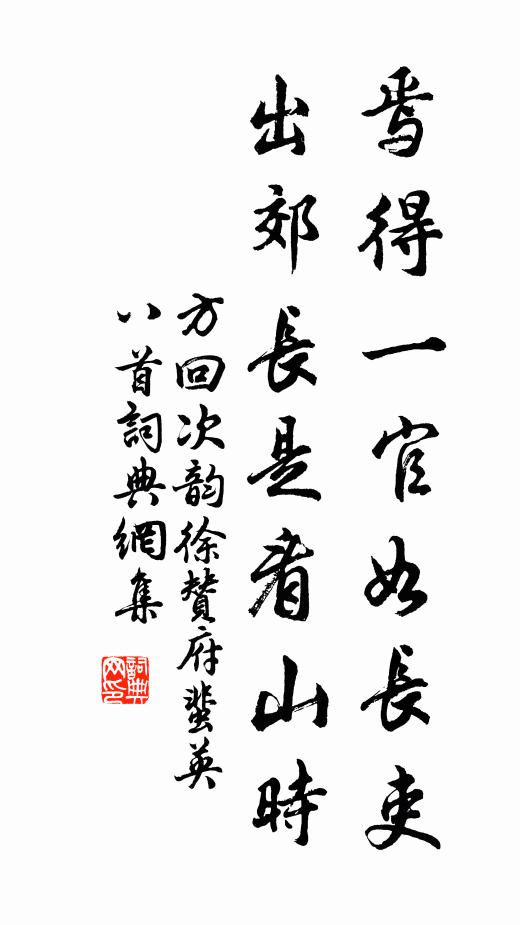 焉得一官如長吏
出郊長是看山時
方回次韵徐贊府蜚英
八首詞典網集
詞典网印